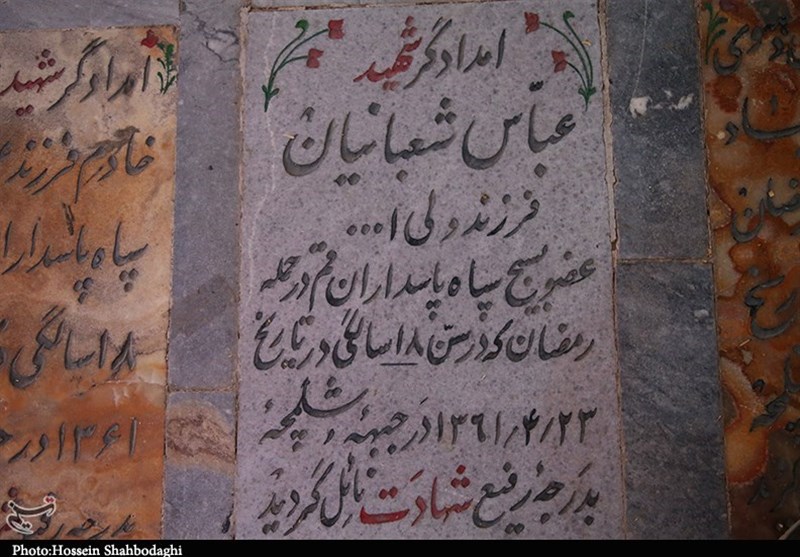 امدادگر شهید
عبّاس شعبانیان
فرزند ولی ا...
عضو بسیج سپاه پاسداران قم در حمله
رمضان که در سنّ ۱۸ سالگی در تاریخ
۱۳۶۱/۴/۲۳ در جبههٔ شلمچه
بدرجهٔ رفیع شهادت نائل گردید
امدادگر شهید
خادم فرزند
سپاه پاسداران
۱۸ سالگی
۱۳۶۱ در
بدرجه رفیع
Photo:Hossein Shahbodaghi